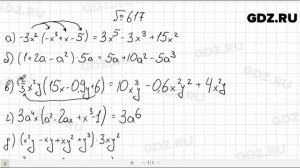 GDZ.RU
№617
а) -3x²(-x³+x-5) = 3x⁵-3x³+15x²
б) (1+2a-a²)·5a = 5a+10a²-5a³
в) ⅔x²y(15x-0,9y+6) = 10x³y-0,6x²y²+4x²y
г) 3a⁴x(a²-2ax+x³-1) = 3a⁶
д) (x²y-xy+xy²+y³)·3xy²
GDZ.RU